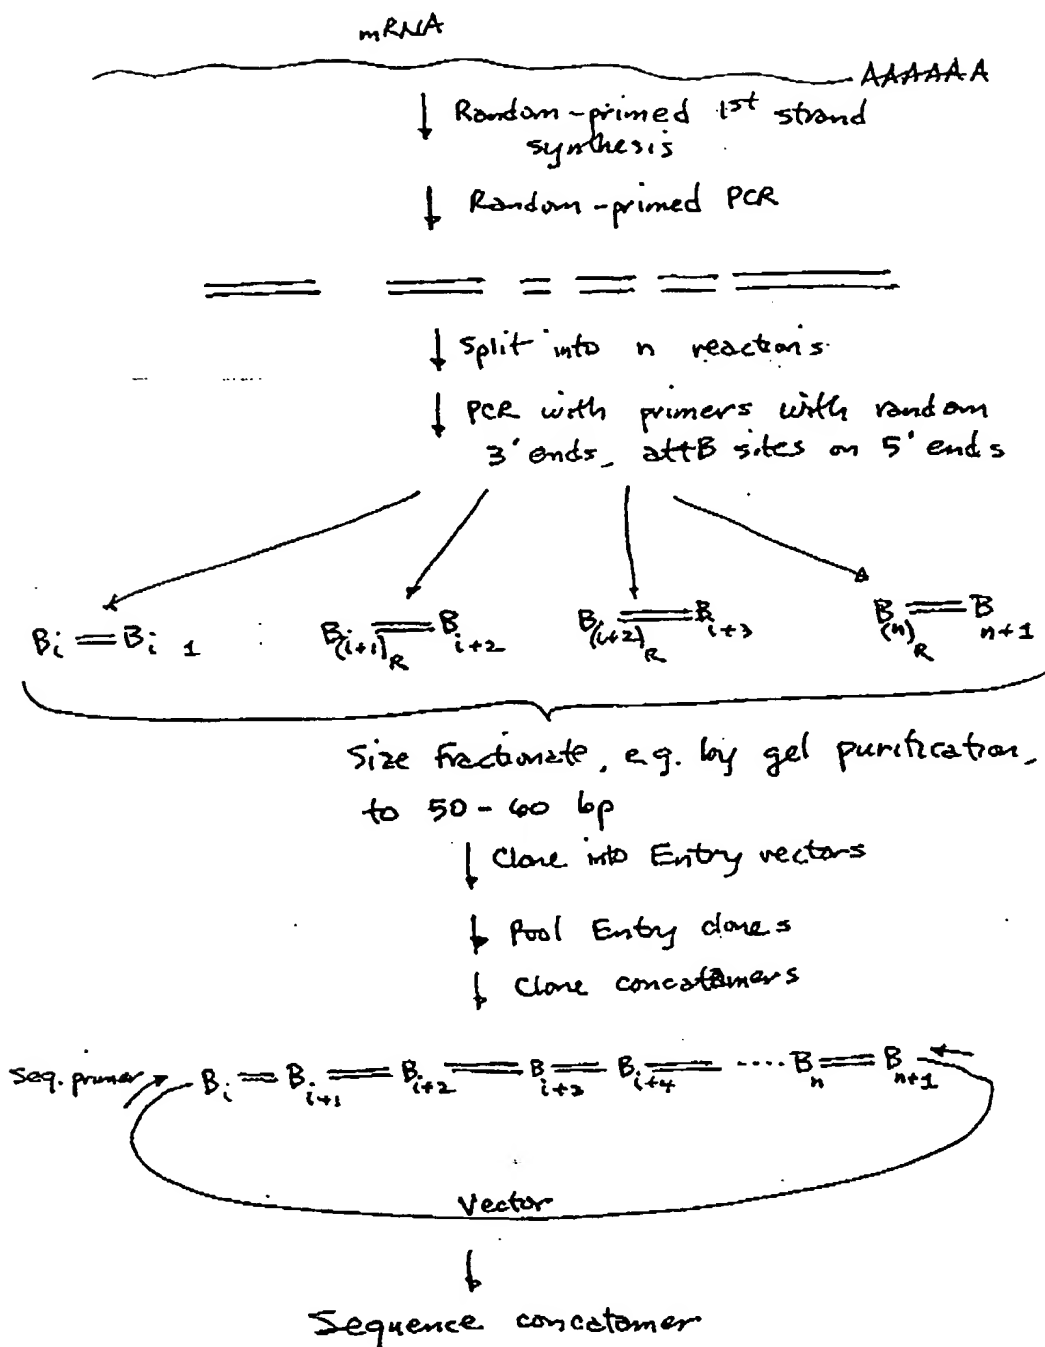 mRNA
AAAAAA
Random-primed 1st strand
synthesis
Random-primed PCR
Split into n reactions
PCR with primers with random
3' ends, attB sites on 5' ends
B_i = B_i 1 B_(i+1)_R = B_i+2 B_(i+2)_R = B_i+3 B_(n)_R = B_n+1
Size fractionate, e.g. by gel purification,
to 50-60 bp
Clone into Entry vectors
Pool Entry clones
Clone concatamers
Seq. primer B_i = B_i+1 = B_i+2 = B_i+3 = B_i+4 = .... B_n = B_n+1
Vector
Sequence concatomer